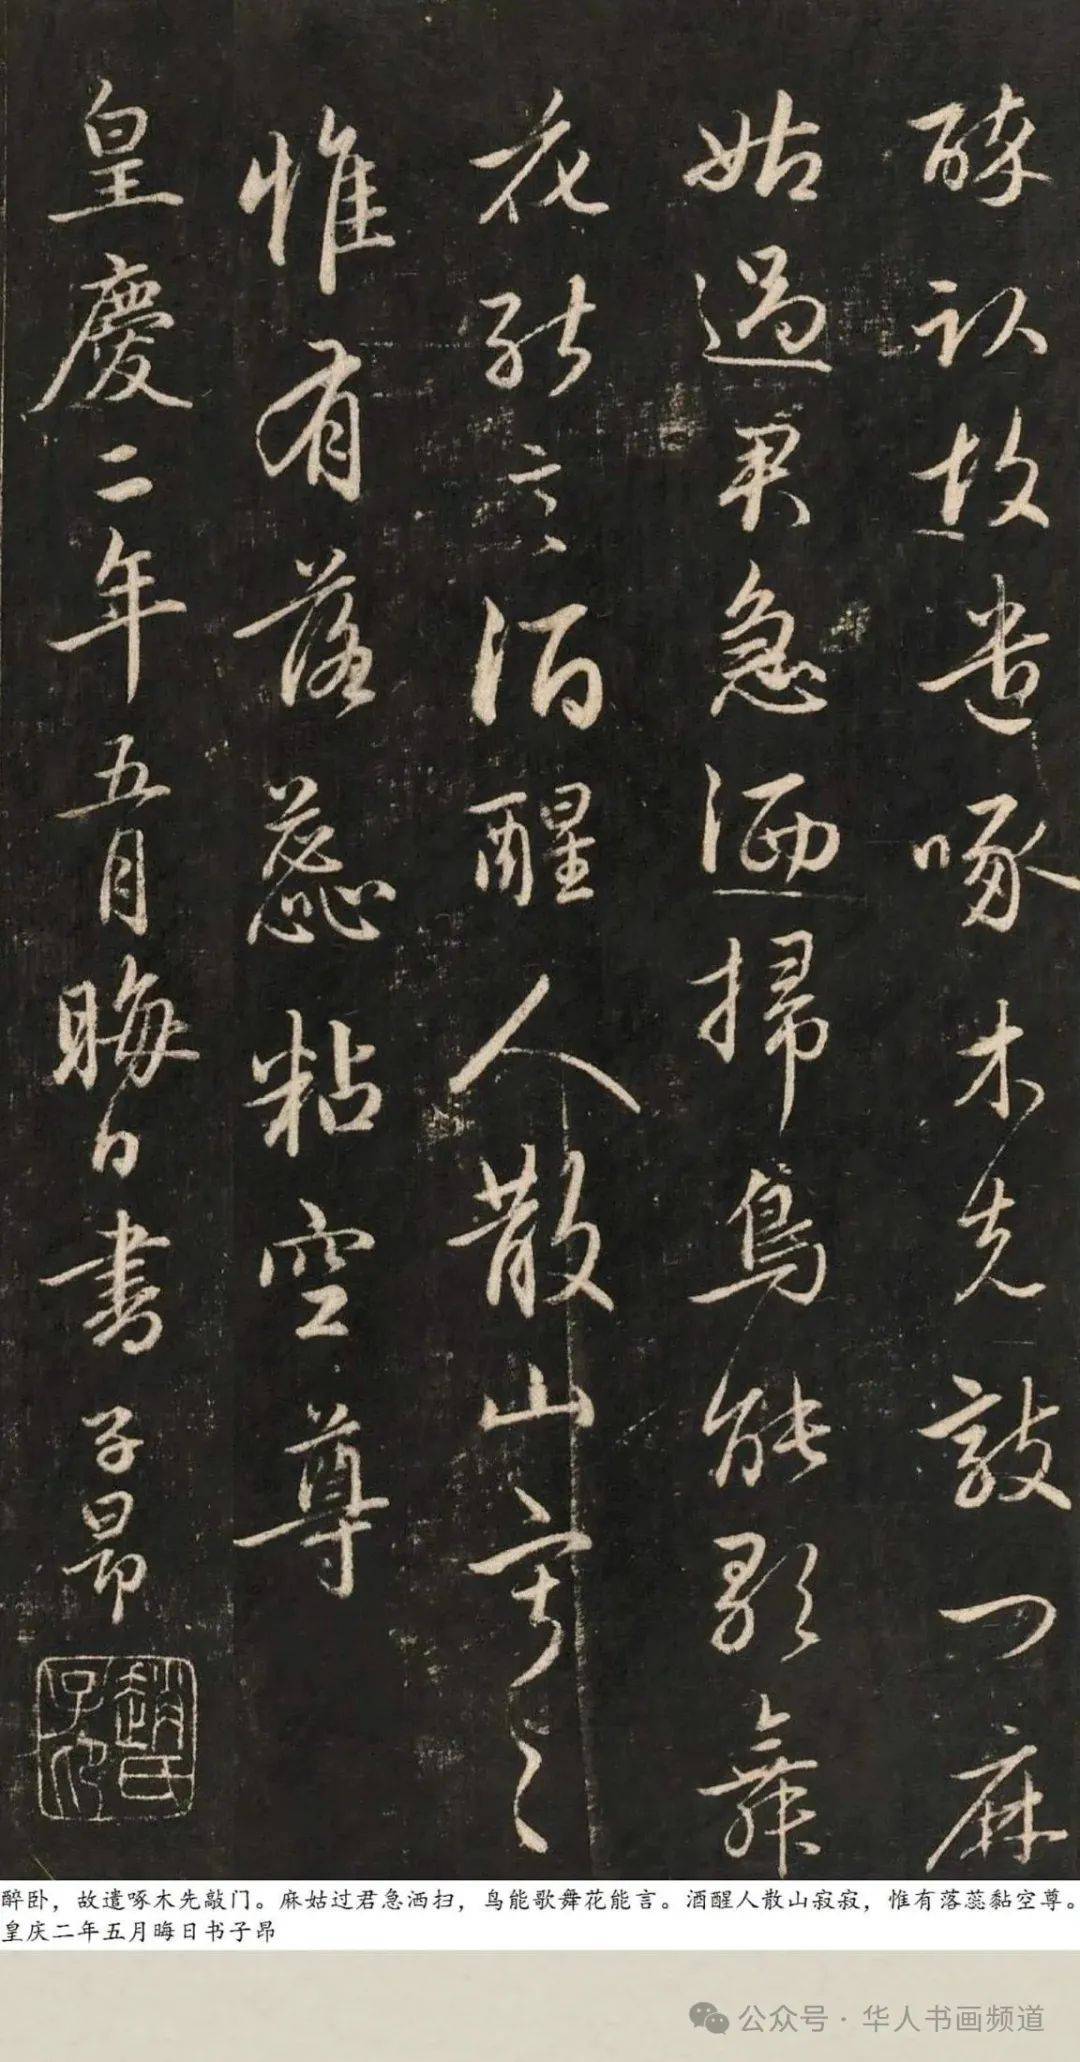 醉卧故遣啄木先敲门麻
姑过君急洒掃鳥能歌舞
花能言酒醒人散山寂〻
惟有落蕊粘空尊
皇慶二年五月晦日書子昂
趙氏子昂
醉卧，故遣啄木先敲门。麻姑过君急洒扫，鸟能歌舞花能言。酒醒人散山寂寂，惟有落蕊黏空尊。
皇庆二年五月晦日书子昂
公众号·华人书画频道